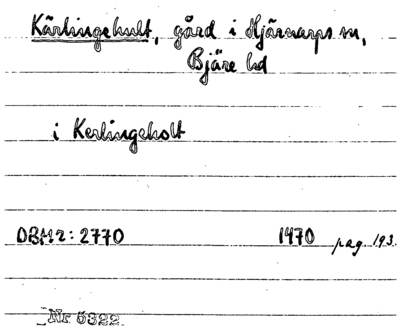 Kärlingehult, gård i Hjärnarps sn,
Bjäre hd
i Kerlingeholt
DBM2: 2770 1470 pag. 193.
Nr 5322